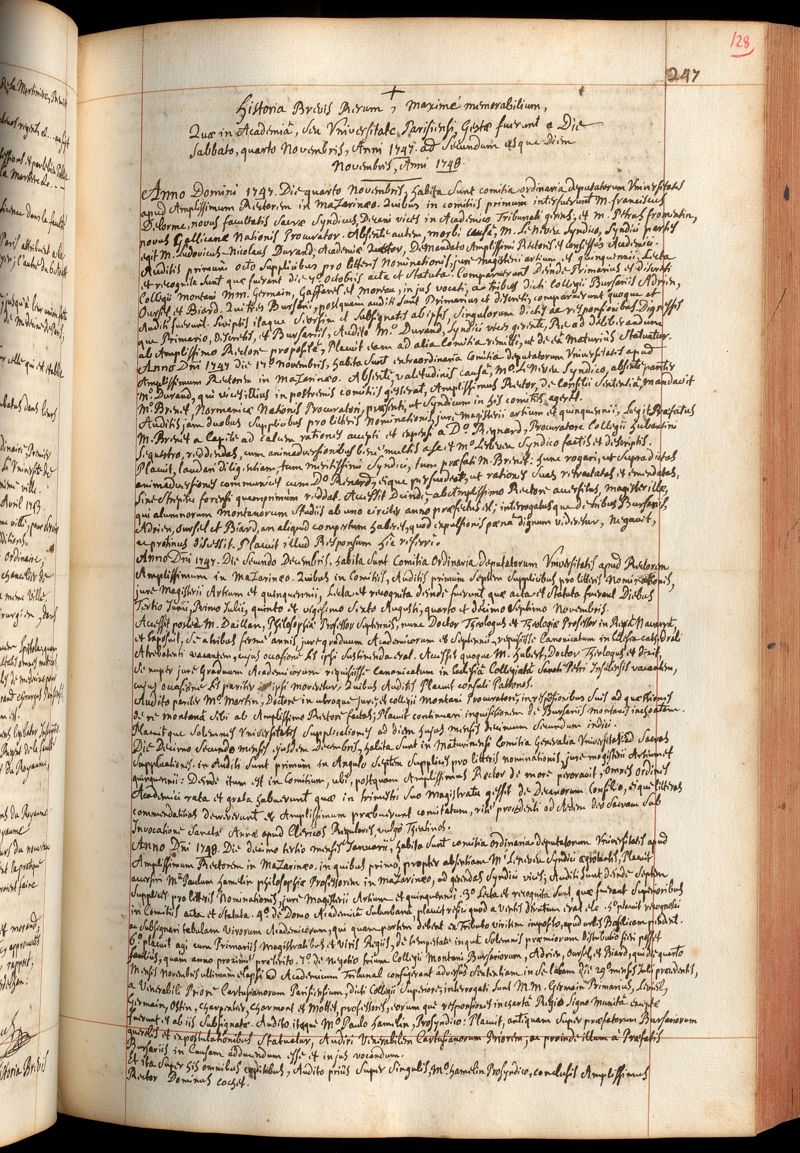 128
247
Historia Brevis Rerum, maximè memorabilium,
Quæ in Academiâ, seu Universitate, Parisiensi, Gestæ fuerunt a Die
Sabbato, quarto Novembris, Anni 1747. ad secundum usque diem
Novembris, Anni 1748.
Anno Domini 1747. Die quarto Novembris, habita sunt comitia ordinaria deputatorum Universitatis
apud Amplissimum Rectorem in Mazarinæo. Quibus in comitiis primum interfuerunt M. franciscus
Delorme, novus facultatis Sacræ Syndicus, Decani vices in Academico Tribunali gerens, et M. Petrus fromentin,
novus Gallicanæ Nationis Procurator. Absente autem, morbi causâ, M. Le neveu Syndico, Syndici partes
egit M. Ludovicus-Nicolaus Durand, Academiæ Quæstor, De mandato Amplissimi Rectoris et consessûs Academici.
Auditis primum octo Supplicibus pro litteris Nominationis, jure magisterii artium et quinquennii, Lecta
et recognita Sunt quæ fuerant die 7º octobris acta et Statuta. Comparuerunt Deinde Primarius et discreti
Collegii Montani MM. Germain, Gaffarel et Moreau, in jus vocati, a tribus dicti collegii Bursariis Adrien,
Oursel et Biard. Qui tres Bursarii, postquam auditi Sunt Primarius et discreti, comparuerunt quoque et
Auditi fuerunt. Scriptis itaque Seorsim et Subsignatis ab ipsis, Singulorum dictis ac responsionibus Digressis
que Primario, Discretis, et Bursariis, Audito Mº Durand, Syndici vices gerente, Re ad deliberandum
ab Amplissimo Rectore propositâ, Placuit eam ad alia Comitia remitti, ut de eâ maturiùs Statuatur.
Anno Dni 1747 die 17º Novembris, habita Sunt extraordinaria Comitia deputatorum Universitatis apud
Amplissimum Rectorem in Mazarinæo. Absente, valetudinis causâ, Mº Le neveu Syndico, absente pariter
Mº Durand, qui vices illius in postremis comitiis gesserat, Amplissimus Rector, de Consilii Sententiâ, mandavit
Mº Brenet, Normanicæ Nationis Procuratori, præsenti, ut Syndicum in his comitiis ageret.
Auditis jam duobus Supplicibus pro litteris Nominationis, jure magisterii artium et quinquennii, Legit Præfatus
M. Brenet a capite ad calcem rationes accepti et expensi a Dº Regnard, Procuratore Collegii Hubantini
Sequestro, reddendas, cum animadversionibus benè multis a se et Mº Leneveu Syndico factis et descriptis.
Placuit, laudari diligentiam, tum meritissimi Syndici, tum præfati M. Brenet. hunc rogari, ut Supradictas
animadversiones communicet cum Dº Renard, eique persuadeat, ut rationes Suas retractatas et emendatas,
Sine Strepitu forensi quamprimum reddat. Accessit Deinde, ab Amplissimo Rectore accersitus, magister ille,
qui alumnorum montanorum Studiis ab uno circiter anno præfectus est; interrogatusque de tribus Bursariis,
Adrien, oursel et Biard, an aliquid compertum haberet, quod expulsionis pœnâ dignum videretur, Negavit,
ac protinus discessit. Placuit illud Responsum hic referri.
Anno Dni 1747. Die Secundo Decembris, habita Sunt Comitia Ordinaria Deputatorum Universitatis apud Rectorem
Amplissimum in Mazarinæo. Quibus in Comitiis, Auditis primùm Septem Supplicibus pro litteris Nominationis,
jure Magisterii Artium et quinquennii, Lecta et recognita deinde fuerunt quæ acta et Statuta fuerant Diebus
Tertio Junii, Primo Julii, quinto et vigesimo Sexto Augusti, quarto et decimo Septimo Novembris.
Accessit posteà M. Daillan, Philosophiæ Professor Septennis, nunc Doctor Theologus et Theologiæ Professor in Regiâ Navarrâ,
et Exposuit, se a tribus fermè annis, jure graduum Academicorum et Septennii, requisisse Canonicatum in Ecclesia cathedrali
Atrebatensi vacantem, cujus occasione lis ipsi Sustinenda erat. Accessit quoque M. hubert, Doctor Theologus et dixit,
se nuper jure Graduum Academicorum requisiisse Canonicatum in Ecclesiâ Collegiatâ Sancti Petri Insulensis vacantem,
cujus occasione lis pariter ipsi movetur, Quibus Auditis Placuit consuli Patronos.
Audito pariter Mº Martin, Doctore in utroque jure, et collegii montani Procuratore; in responsionibus Suis ad quæstiones
de re montanâ Sibi ab Amplissimo Rectore factas; Placuit continuari inquisitionem de Bursariis montanis inchoatam.
Placuitque Solemnes Universitatis Supplicationes ad diem hujus mensis decimum Secundum indici.
Die Decimo Secundo mensis ejusdem Decembris, habita Sunt in Maturinensi Comitia Generalia Universitatis ad Sacras
Supplicationes. in Auditi Sunt primùm in Angulo Septem Supplices pro litteris nominationis, jure magisterii Artium et
quinquennii: Deinde itum est in Comitium, ubi, postquam Amplissimus Rector de more peroravit, omnes ordines
Academici rata et grata habuerunt quæ in trimestri Suo Magistratu gessit de Decanorum Consilio, eique litteras
commendatitias decreverunt et Amplissimum præbuerunt comitatum, ritè procedenti ad Aedem Deo Sacram Sub
Invocatione Sanctæ Annæ apud Clericos Regulares, vulgò Theatinos.
Anno Dni 1748. Die decimo tertio mensis Januarii, habita Sunt comitia ordinaria deputatorum Universitatis apud
Amplissimum Rectorem in Mazarinæo, in quibus primò, propter absentiam Mº Leneveu Syndici ægrotantis, Placuit
accersiri Mm Paulum hamelin philosophiæ Professorem in Mazarinæo, ad gerendas Syndici vices, Auditi Sunt deinde Septem
Supplices pro litteris Nominationis, jure Magisterii Artium et quinquennii. 3º Lecta et recognita Sunt, quæ fuerant Superioribus
in Comitiis acta et Statuta. 4º de Domo Academiæ Suburbanâ, placuit refici quod a ventis dirutum erat etc. 5º placuit recognosci
ac Subsignari tabulam Virorum Academicorum, qui quam partem debent ex Tributo viritim imposito, apud urbis Basilicam pendent.
6º placuit agi cum Primariis Magistratibus et Viris Regiis, de tempestate in quâ Solemnis præmiorum distributio fieri posset
faustius, quàm anno proximè præterito. 7º de Negotio trium Collegii Montani Bursariorum, Adrien, Oursel, et Biard, qui die quarto
Mensis Novembris ultimum elapsi ad Academicum Tribunal confugerant adversùs Sententiam in Se latam die 29ª mensis Julii præcedentis,
a Venerabili Priore Cartusianorum Parisiensium, dicti Collegii Superiore; interrogati Sunt MM. Germain Primarius,
Germain, Ostin, Charpentier, Charmont et Mottet, professores, eorum quæ responsiones in chartâ Regio Signo munitâ exceptæ
fuerunt et ab iis Subsignatæ. Audito itaque Mº Paulo Hamelin, Prosyndico: Placuit, antequam Super præfatorum Bursariorum
querelis et expostulationibus Statuatur, Audiri Venerabilem Cartusianorum Priorem, ac proinde illum a Præfatis
Bursariis in Causam adducendum esse et in jus vocandum.
Et ita Super his omnibus capitibus, Audito priùs Super Singulis, Mº hamelin Prosyndico, conclusit Amplissimus
Rector Dominus cochet.